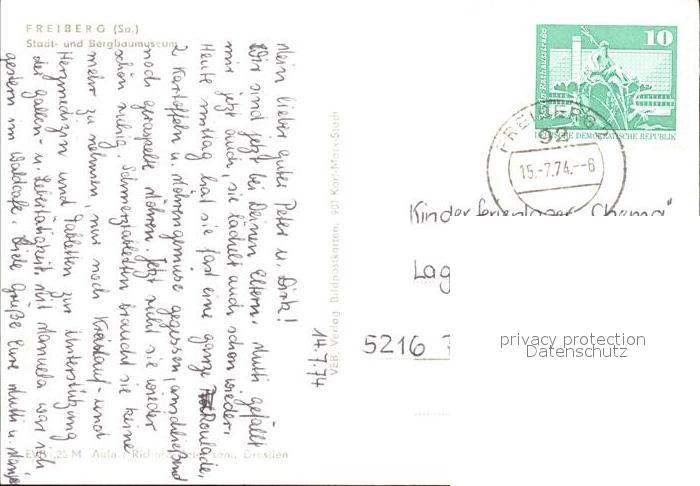 FREIBERG (Sa.)
Stadt- und Bergbaumuseum
14.7.74
Mein lieber guter Peter u. Dirk!
Wir sind jetzt bei Deinen Eltern. Mutti gefällt
mir jetzt auch, sie lächelt auch schon wieder.
Heute mittag hat sie fast eine ganze Roulade,
2 Kartoffeln u. Möhrengemüse gegessen, anschließend
noch geraspelte Möhren. Jetzt ruht sie wieder
schön ruhig. Schmerztabletten braucht sie keine
mehr zu nehmen, nur noch Kreislauf- und
Herzmedizin und Tabletten zur Unterstützung
der gallen- u. Lebertätigkeit. Mit Manuela war ich
gestern im Waldcafe. Viele Grüße Eure Mutti u.
VEB Verlag Bildpostkarten, 901 Karl-Marx-Stadt
EVP ,25 M Aufn.: Dresden
10
DEUTSCHE DEMOKRATISCHE REPUBLIK
FREIBERG
92
15.-7.74.--6
Kinderferienlager
Lag
5216
privacy protection
Datenschutz